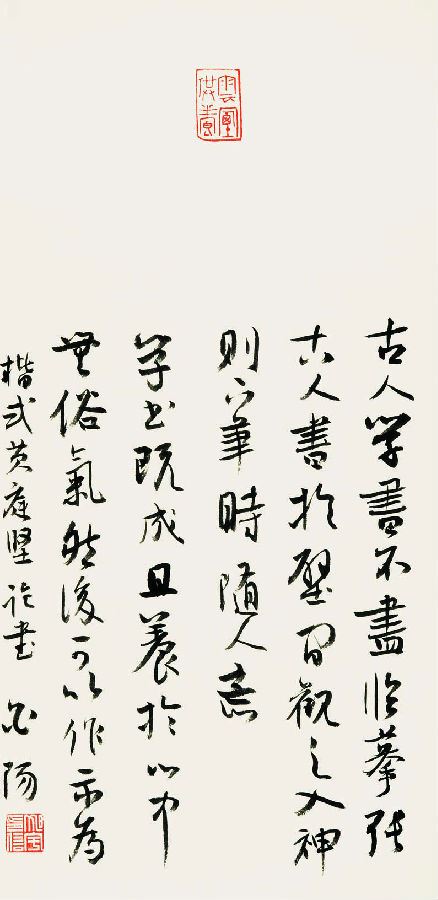 古人學書不盡臨摹張
古人書於壁間觀之入神
則下筆時隨人意
學書既成且養於心中
無俗氣然後可以作示為
楷式黄庭堅論書 白陽
雲窗供養